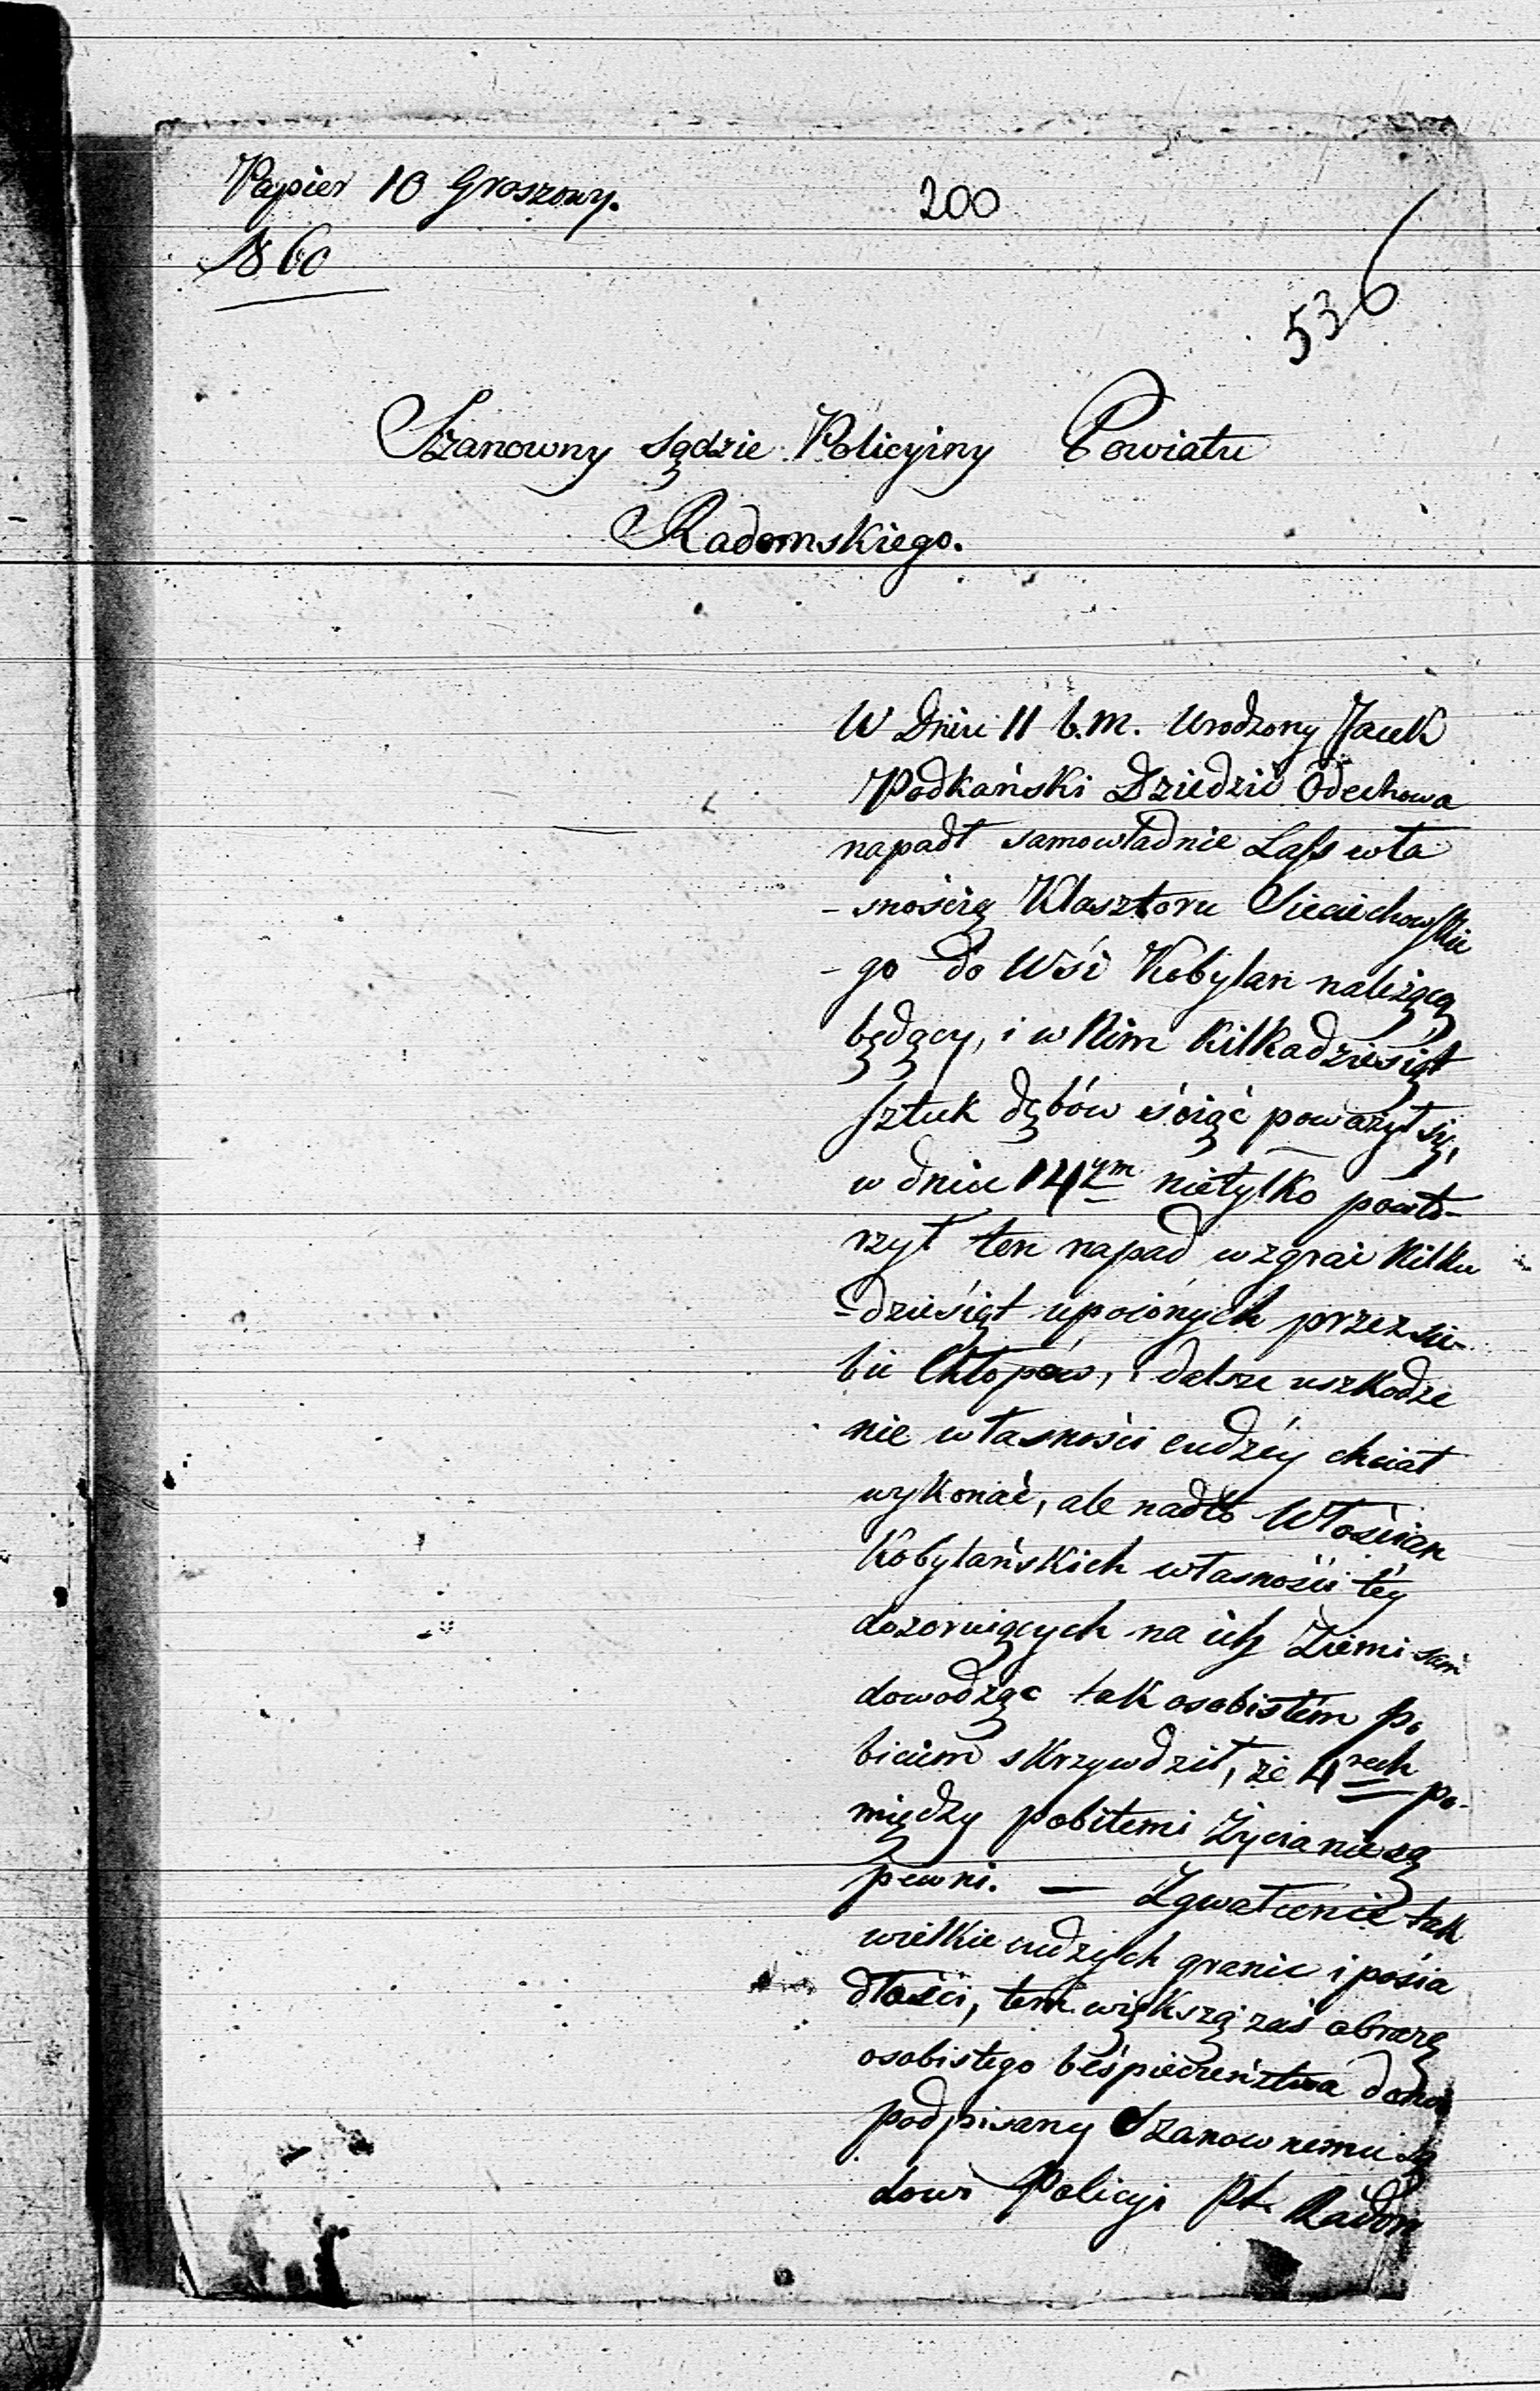 Papier 10 Groszowy.
200
1860
536
Szanowny Sądzie Policyiny Powiatu
Radomskiego.
W Dniu 11 b.m. Urodzony Jacek
Podkański Dziedzic Odechowa
napadł samowładnie Lass wła
-snością Klasztoru Sieciechowskie
-go do Wsi Kobylan należącą
będący, i w Nim kilkadziesiąt
sztuk dębów ściąć poważył się,
w dniu 14ym nietylko powtó-
rzył ten napad w zgrai kilku
-dziesiąt upoionych przez sie-
bie Chłopów, i dalsze uszkodze
nie własności cudzéy chciał
wykonać, ale nadto Włościan
Kobylańskich własności téy
dozoruiących na ich Ziemi sam
dowodząc tak osobistém po
biciem skrzywdził, że 4rech po-
między pobitemi Życia nie są
pewni. — Zgwałcenie tak
wielkie cudzych granic i posia
dłości, tem większą zaś obrazę
osobistego bespieczeństwa
podpisany Szanownemu Są
dowi Policyi Ptu Radom